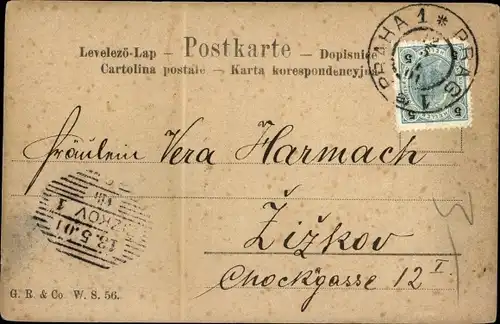 Levelező-Lap – Postkarte – Dopisnice
Cartolina postale – Karta korespondencyjna
PRAHA 1 * PRAG 1
5 5
Fräulein Vera Harmach
Žižkov
Chockgasse 12 I.
ŽIŽKOV 1
13.5.01
VIII
G. R. & Co. W. S. 56.